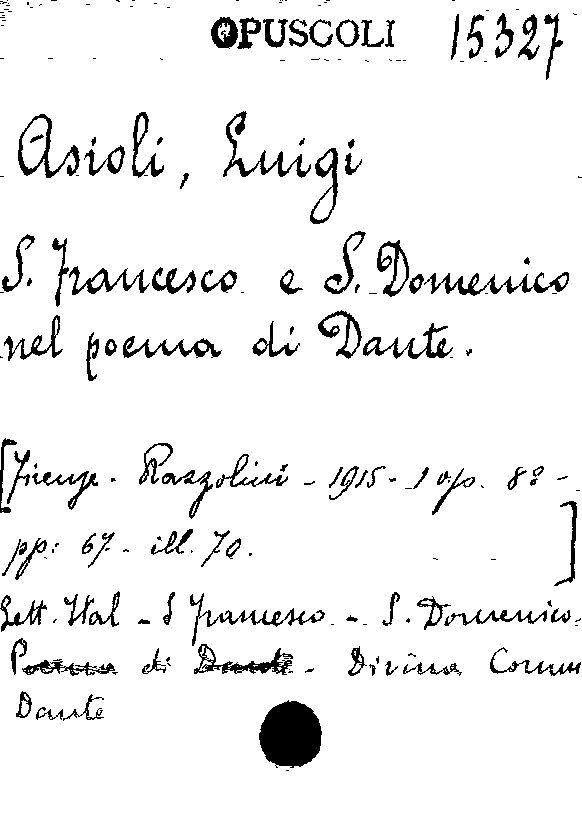 OPUSCOLI 15327
Asioli, Luigi
S. Francesco e S. Domenico
nel poema di Dante.
[Firenze. Razzolini - 1915 - 1 op. 8º -
pp: 67 - ill. 70. ]
Lett. Ital - S Francesco - S. Domenico.
Poema di Dante - Divina Comm
Dante